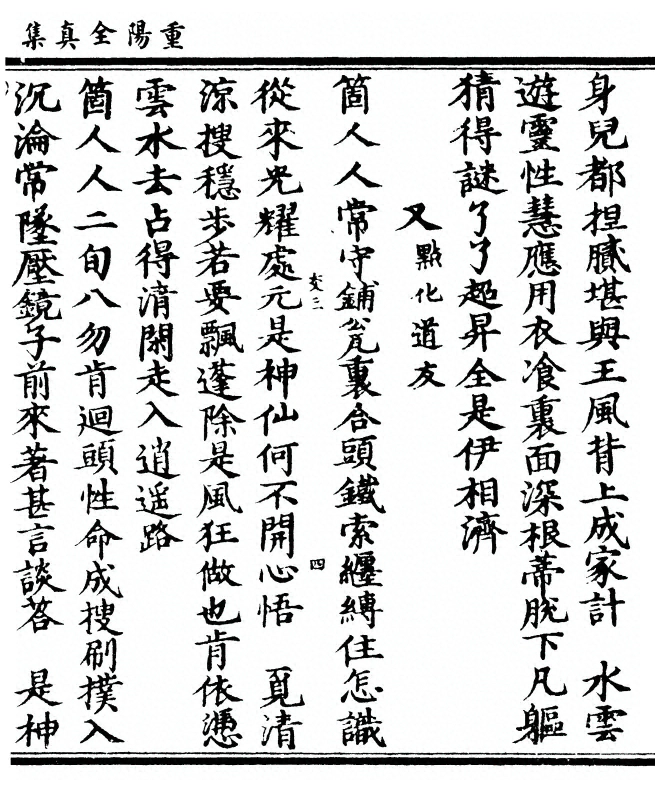 重陽全真集
身兒都捏膩堪與王風背上成家計　水雲
遊靈性慧應用衣飡裏面深根蒂脫下凡軀
猜得謎了了超昇全是伊相濟
又點化道友
箇人人常守鋪瓮裏合頭鐵索纏縛住怎識
從來光耀處元是神仙何不開心悟　覓清
涼搜穩步若要飄蓬除是風狂做也肯依憑
雲水去占得清閑走入逍遥路
箇人人二旬八勿肯迴頭性命成搜刷撲入
沉淪常墜壓鏡子前來著甚言談荅　是神
交三
四